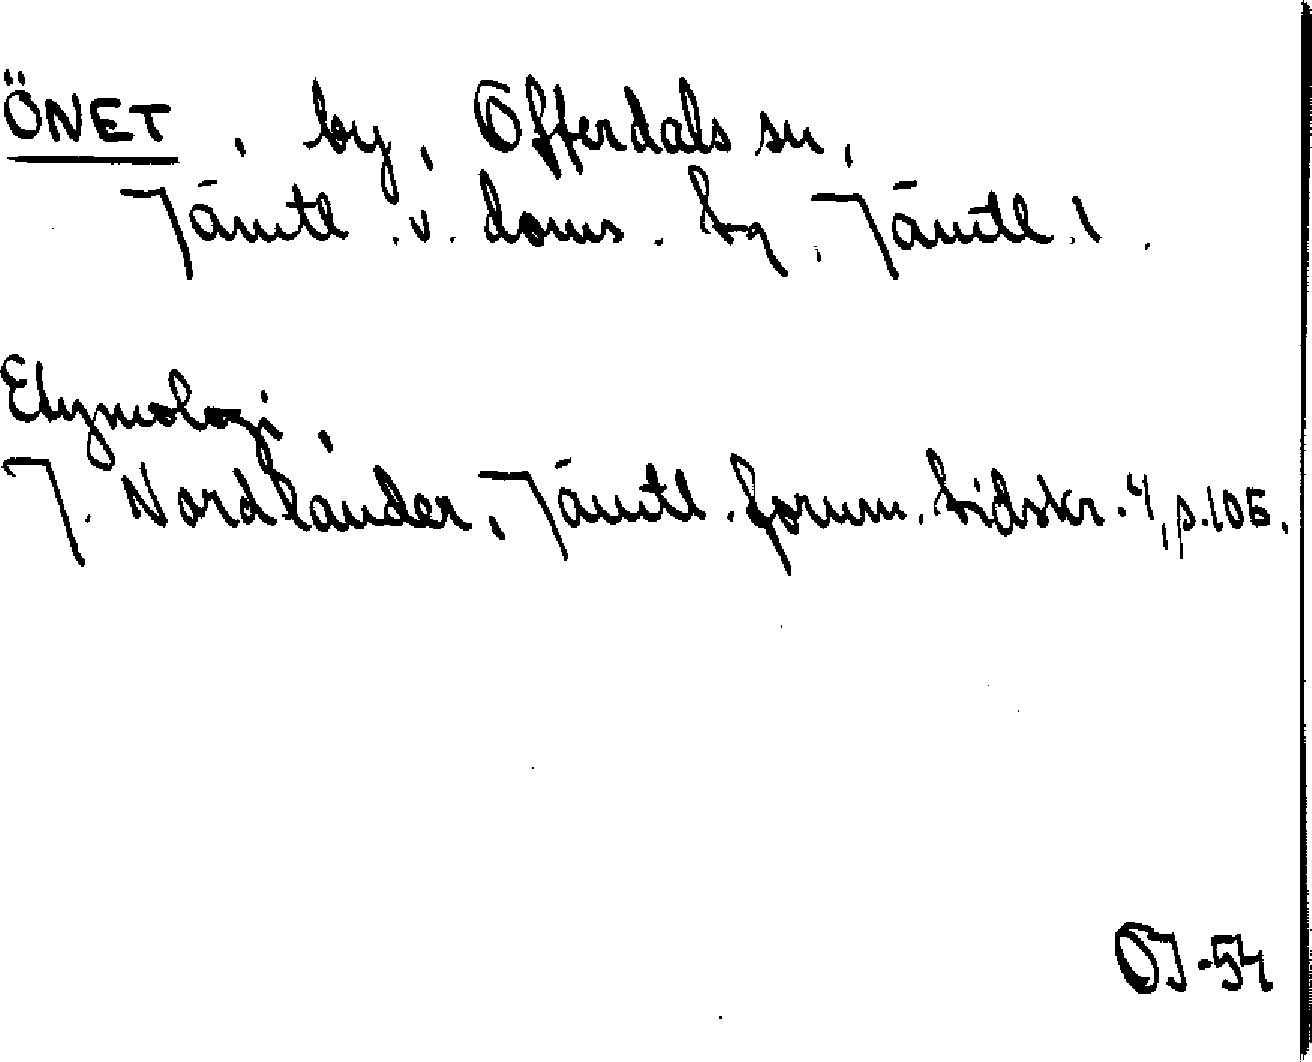 ÖNET, by, Offerdals sn,
Jämtl. v. doms. tg, Jämtl. l.
Etymologi,
J. Nordlander, Jämtl. fornm. tidskr. 4, p. 105.
OJ-54